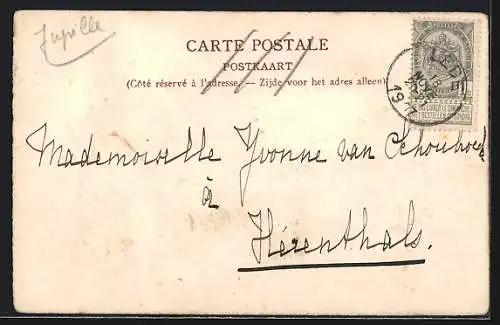 Jupille
CARTE POSTALE
POSTKAART
(Côté réservé à l'adresse. — Zijde voor het adres alleen)
Mademoiselle Yvonne van Schoubroeck
à
Hérenthals.